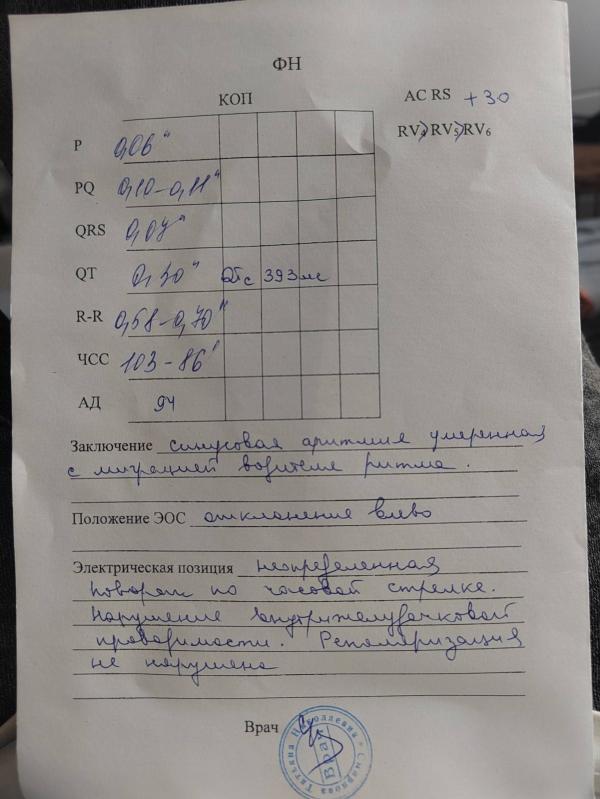 ФН
КОП
AC RS +30
RV4>RV5>RV6
P 0,06"
PQ 0,10-0,11"
QRS 0,07"
QT 0,30" QTc 393 мс
R-R 0,58-0,70"
ЧСС 103-86'
АД 94
Заключение синусовая аритмия умеренная
с миграцией водителя ритма.
Положение ЭОС отклонение влево
Электрическая позиция неопределенная
поворот по часовой стрелке.
Нарушение внутрижелудочковой
проводимости. Реполяризация
не нарушена
Врач
Смирнова Татьяна Николаевна
Врач